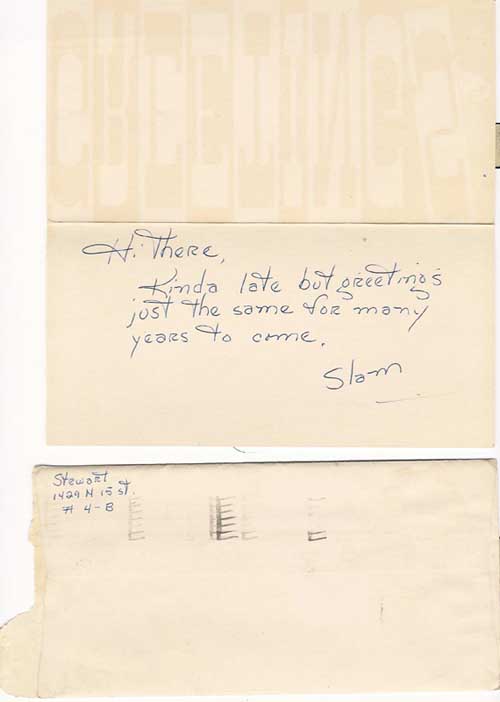 GREETINGS
Hi There,
Kinda late but greetings
just the same for many
years to come.
Slam
Stewart
1429 N 15 st.
# 4-B